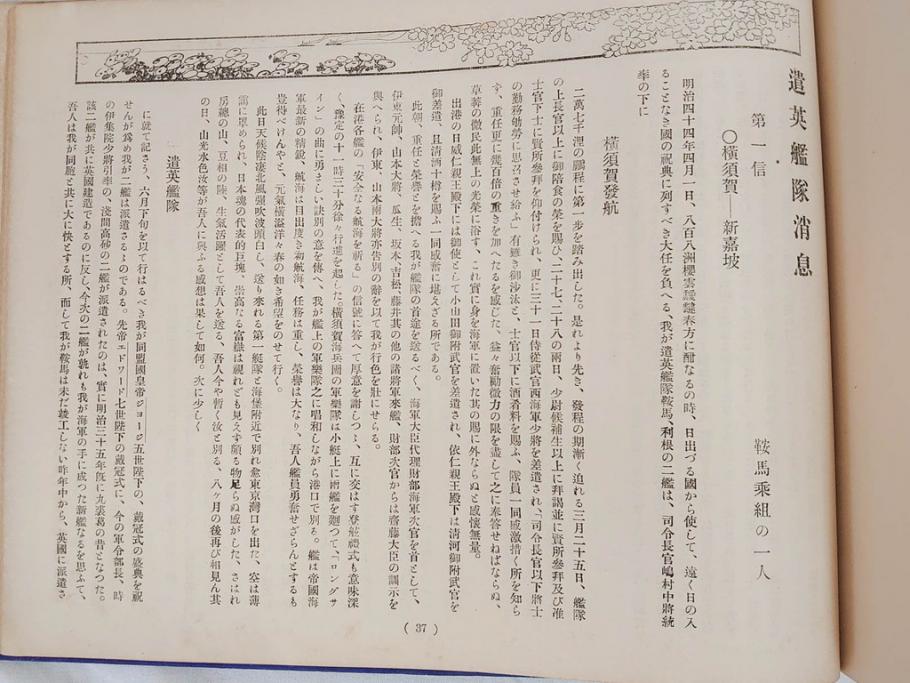 遣英艦隊消息
鞍馬乗組の一人
第一信
〇横須賀——新嘉坡
明治四十四年四月一日、八百八洲櫻雲靉靆春方に酣なるの時、日出づる國から使して、遠く日の入
ることなき國の祝典に列すべき大任を負へる、我が遣英艦隊鞍馬、利根の二艦は、司令長官嶋村中將統
率の下に
横須賀發航
二萬七千浬の航程に第一步を踏み出した。是れより先き、發程の期漸く迫れる三月二十五日、艦隊
の上長官以上に御陪食の榮を賜ひ、二十七、二十八の兩日、少尉候補生以上に拜謁並に賢所參拜及び准
士官下士に賢所參拜を仰付けられ、更に三十一日侍從武官西海軍少將を差遣され、「司令長官以下將士
の勤務勤勞に思召させ給ふ」有難き御沙汰と、士官以下に酒肴料を賜ふ、隊員一同感激措く所を知ら
ず、重任更に幾百倍の重きを加へたるを感じた、益々奮勵微力の限を盡して之に奉答せねばならぬ、
草莽の微臣此無上の光榮に浴す、これ實に身を海軍に置いた其の賜に外ならぬと感懷無量。
出港の日威仁親王殿下には御使として小山田御附武官を差遣され、依仁親王殿下は淸河御附武官を
御差遣、且淸酒十樽を賜ふ一同感奮に堪えざる所である。
此朝、重任と榮譽とを擔へる我が艦隊の首途を送るべく、海軍大臣代理財部海軍次官を首として、
伊東元帥、山本大將、瓜生、坂本、吉松、藤井其の他の諸將軍來艦、財部次官からは齋藤大臣の訓示を
與へられ、伊東、山本兩大將亦告別の辭を以て我が行色を壯にせらる。
在港各艦の「安全なる航海を祈る」の信號に答へて厚意を謝しつゝ、互に交はす登舷禮式も意味深
く、豫定の十一時三十分徐々行進を起した。横須賀海兵團の軍樂隊は小艇上に兩艦を廻つて、「ロングサ
イン」の曲に勇ましい訣別の意を傳へ、我が艦上の軍樂隊之に唱和しながら港口で別る。艦は帝國海
軍最新の精銳、航海は目出度き初航海、任務は重し、榮譽は大なり、吾人艦員勇奮せざらんとするも
豈得べけんやと、元氣橫溢洋々春の如き希望をのせて行く。
此日天候陰凄北風强吹波頭白し、送り來れる第一艇隊と海堡附近で別れ愈東京灣口を出た、空は薄
靄に罩められ、日本魂の代表的巨塊、崇高なる富嶽は視れども見えず頗る物足らぬ感がした、さはれ
房總の山、豆相の陸、生氣活躍として吾人を送る、吾人今や暫く汝と別る、八ヶ月の後再び相見ん其
の日、山光水色汝等が吾人に與ふる感想は果して如何。次に少しく
遣英艦隊
に就て記さう、六月下旬を以て行はるべき我が同盟國皇帝ジョージ五世陛下の、戴冠式の盛典を祝
せんが爲め我が二艦は派遣さるゝのである。先帝エドワード七世陛下の戴冠式に、今の軍令部長、時
の伊集院少將引率の、淺間高砂の二艦が派遣されたのは、實に明治三十五年旣に九裘葛の昔となつた。
該二艦が共に英國建造であるのに反し、今次の二艦が孰れも我が海軍の手に成つた新艦なるを思ふて、
吾人は我が同胞と共に大に快とする所、而して我が鞍馬は未だ竣工しない昨年中から、英國に派遣さ
( 37 )